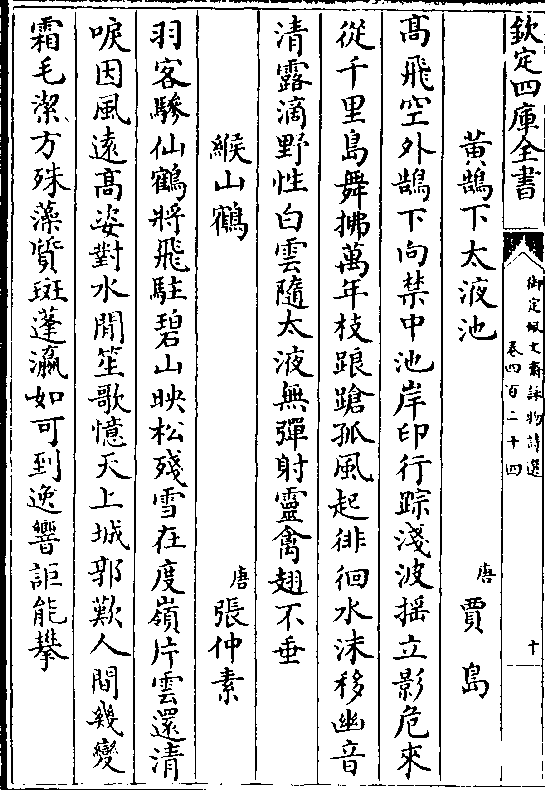 欽定四庫全書
御定佩文齋詠物詩選
卷四百二十四
十
黃鵠下太液池
唐 賈島
高飛空外鵠下向禁中池岸印行踪淺波搖立影危來
從千里島舞拂萬年枝踉蹌孤風起徘徊水沫移幽音
清露滴野性白雲隨太液無彈射靈禽翅不垂
緱山鶴
唐 張仲素
羽客驂仙鶴將飛駐碧山映松殘雪在度嶺片雲還清
唳因風遠高姿對水閒笙歌憶天上城郭歎人間幾變
霜毛潔方殊藻質斑蓬瀛如可到逸響詎能攀